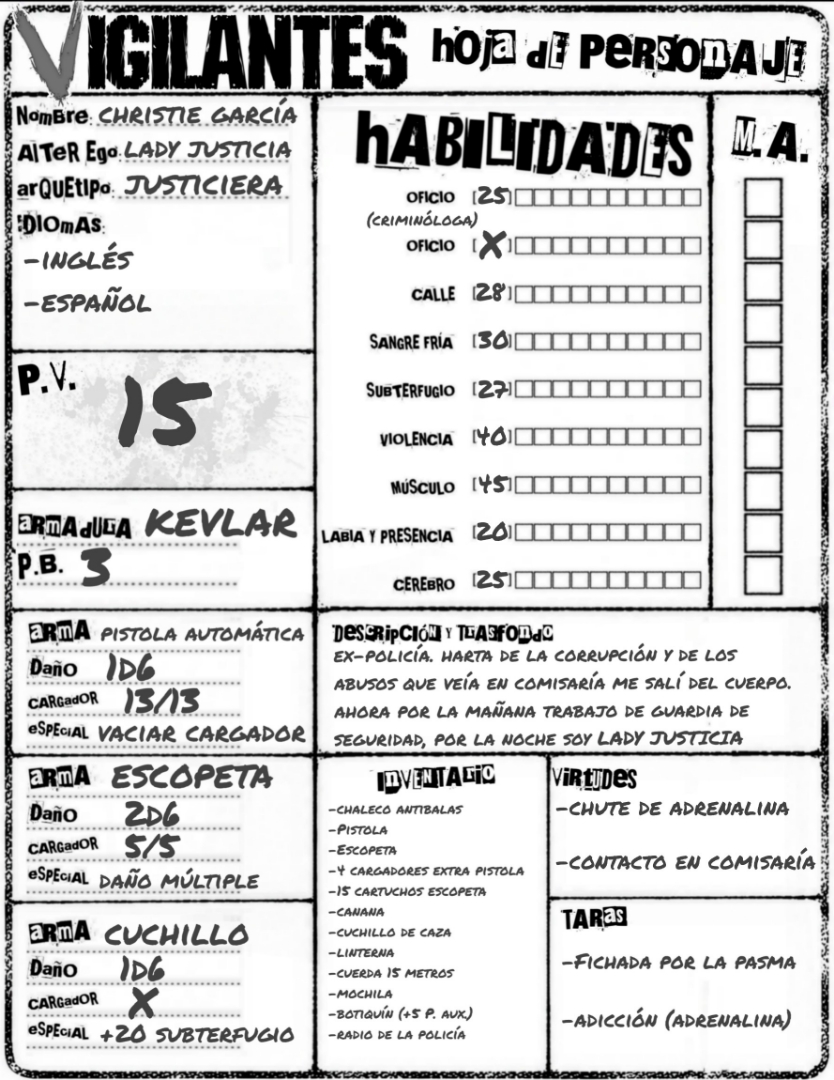 VIGILANTES HOJA DE PERSONAJE
NomBre: CHRISTIE GARCÍA
AlTeR Ego: LADY JUSTICIA
arQUEtIPo: JUSTICIERA
IDIOmAs:
-INGLÉS
-ESPAÑOL
P.V. 15
ARMADURA KEVLAR
P.B. 3
ARMA PISTOLA AUTOMÁTICA
Daño 1D6
CARGadOR 13/13
eSPEciAL VACIAR CARGADOR
ARMA ESCOPETA
Daño 2D6
CARGadOR 5/5
eSPEciAL DAÑO MÚLTIPLE
ARMA CUCHILLO
Daño 1D6
CARGadOR X
eSPEciAL +20 SUBTERFUGIO
HABILIDADES
OFICIO [25]
(CRIMINÓLOGA)
OFICIO [X]
CALLE [28]
SANGRE FRÍA [30]
SUBTERFUGIO [27]
VIOLENCIA [40]
MÚSCULO [45]
LABIA Y PRESENCIA [20]
CEREBRO [25]
M.A.
DESCRIPCIÓN Y TRASFONDO
EX-POLICÍA. HARTA DE LA CORRUPCIÓN Y DE LOS
ABUSOS QUE VEÍA EN COMISARÍA ME SALÍ DEL CUERPO.
AHORA POR LA MAÑANA TRABAJO DE GUARDIA DE
SEGURIDAD, POR LA NOCHE SOY LADY JUSTICIA
INVENTARIO
-CHALECO ANTIBALAS
-PISTOLA
-ESCOPETA
-4 CARGADORES EXTRA PISTOLA
-15 CARTUCHOS ESCOPETA
-CANANA
-CUCHILLO DE CAZA
-LINTERNA
-CUERDA 15 METROS
-MOCHILA
-BOTIQUÍN (+5 P. AUX.)
-RADIO DE LA POLICÍA
VIRTUDES
-CHUTE DE ADRENALINA
-CONTACTO EN COMISARÍA
TARAS
-FICHADA POR LA PASMA
-ADICCIÓN (ADRENALINA)